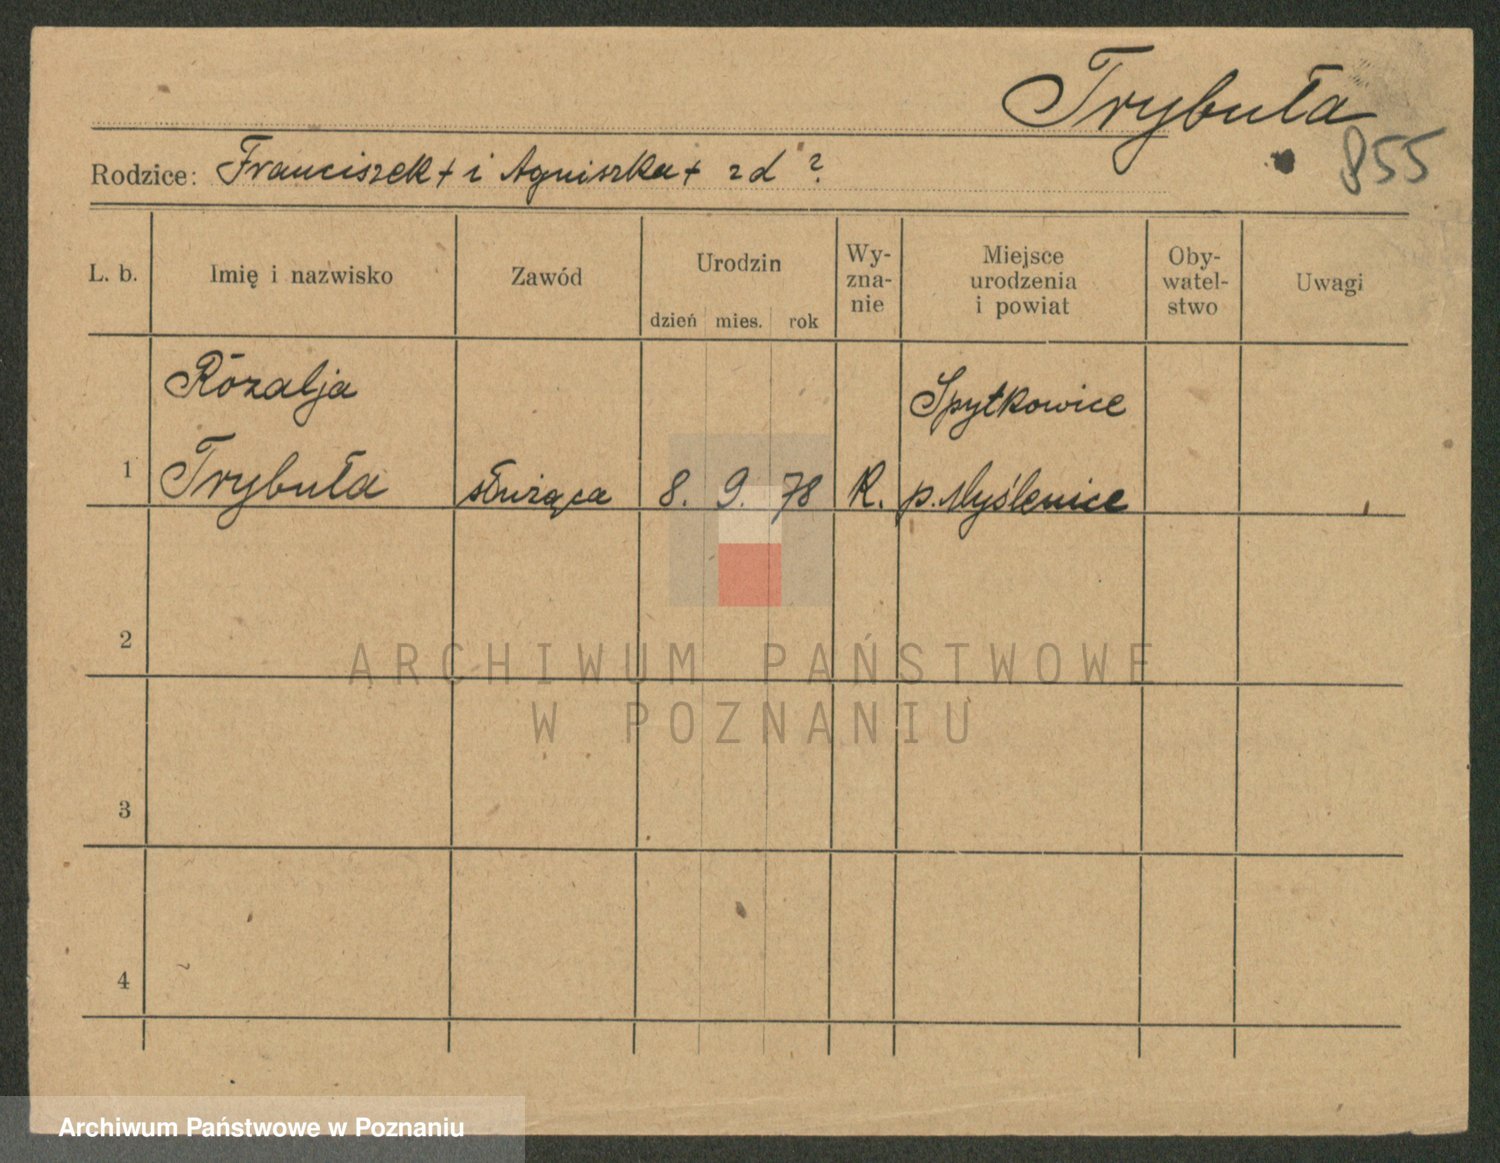 Trybuła
855
Rodzice: Franciszek + i Agniszka + zd ?
L. b.
Imię i nazwisko
Zawód
Urodzin
dzień mies. rok
Wy-
zna-
nie
Miejsce
urodzenia
i powiat
Oby-
watel-
stwo
Uwagi
1
Rózalja
Trybuła
służąca
8. 9. 78
R.
Spytkowice
p. Myślenice
2
3
4
ARCHIWUM PAŃSTWOWE
W POZNANIU
Archiwum Państwowe w Poznaniu